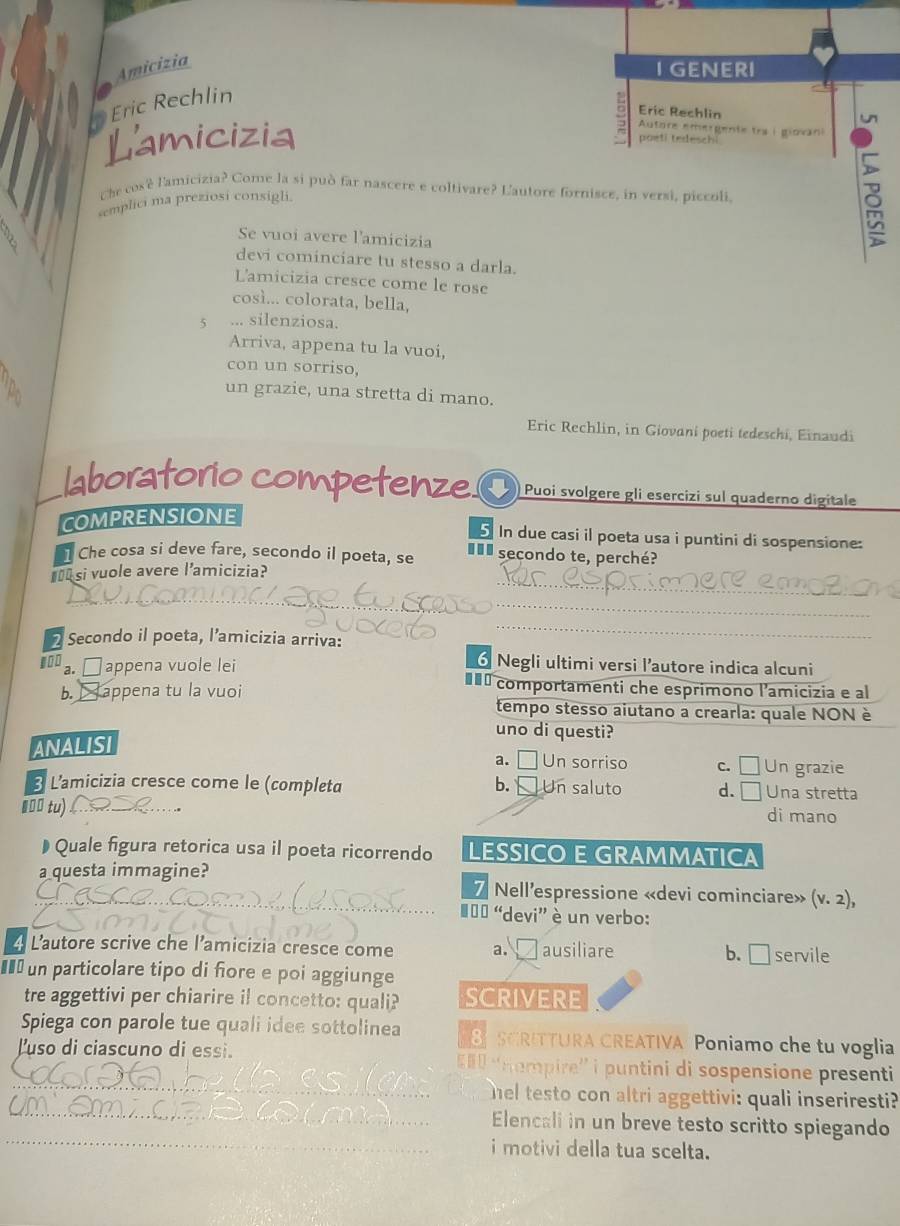 Amicizia
Eric Rechlin
L'amicizia
I GENERI
L'autore
Eric Rechlin
Autore emergente tra i giovani
poeti tedeschi.
5 LA POESIA
Che cos'è l'amicizia? Come la si può far nascere e coltivare? L'autore fornisce, in versi, piccoli,
semplici ma preziosi consigli.
Se vuoi avere l'amicizia
devi cominciare tu stesso a darla.
L'amicizia cresce come le rose
così... colorata, bella,
5 ... silenziosa.
Arriva, appena tu la vuoi,
con un sorriso,
un grazie, una stretta di mano.
Eric Rechlin, in Giovani poeti tedeschi, Einaudi
laboratorio competenze
Puoi svolgere gli esercizi sul quaderno digitale
COMPRENSIONE
1 Che cosa si deve fare, secondo il poeta, se
si vuole avere l'amicizia?
Devi cominciare tu stesso
2 Secondo il poeta, l'amicizia arriva:
a. appena vuole lei
b. appena tu la vuoi
ANALISI
3 L'amicizia cresce come le (completa
tu) rose.
Quale figura retorica usa il poeta ricorrendo
a questa immagine?
cresce come le rose
(similitudine)
4 L'autore scrive che l'amicizia cresce come
un particolare tipo di fiore e poi aggiunge
tre aggettivi per chiarire il concetto: quali?
Spiega con parole tue quali idee sottolinea
l'uso di ciascuno di essi.
Colorata, bella e silenz
un'amicizia calma
5 In due casi il poeta usa i puntini di sospensione:
secondo te, perché?
Per esprimere emozioni
6 Negli ultimi versi l'autore indica alcuni
comportamenti che esprimono l'amicizia e al
tempo stesso aiutano a crearla: quale NON è
uno di questi?
a. Un sorriso c. Un grazie
b. Un saluto d. Una stretta
di mano
LESSICO E GRAMMATICA
7 Nell'espressione «devi cominciare» (v. 2),
“devi” è un verbo:
a. ausiliare b. servile
SCRIVERE
8 SCRITTURA CREATIVA Poniamo che tu voglia
“riempire” i puntini di sospensione presenti
nel testo con altri aggettivi: quali inseriresti?
Elencali in un breve testo scritto spiegando
i motivi della tua scelta.